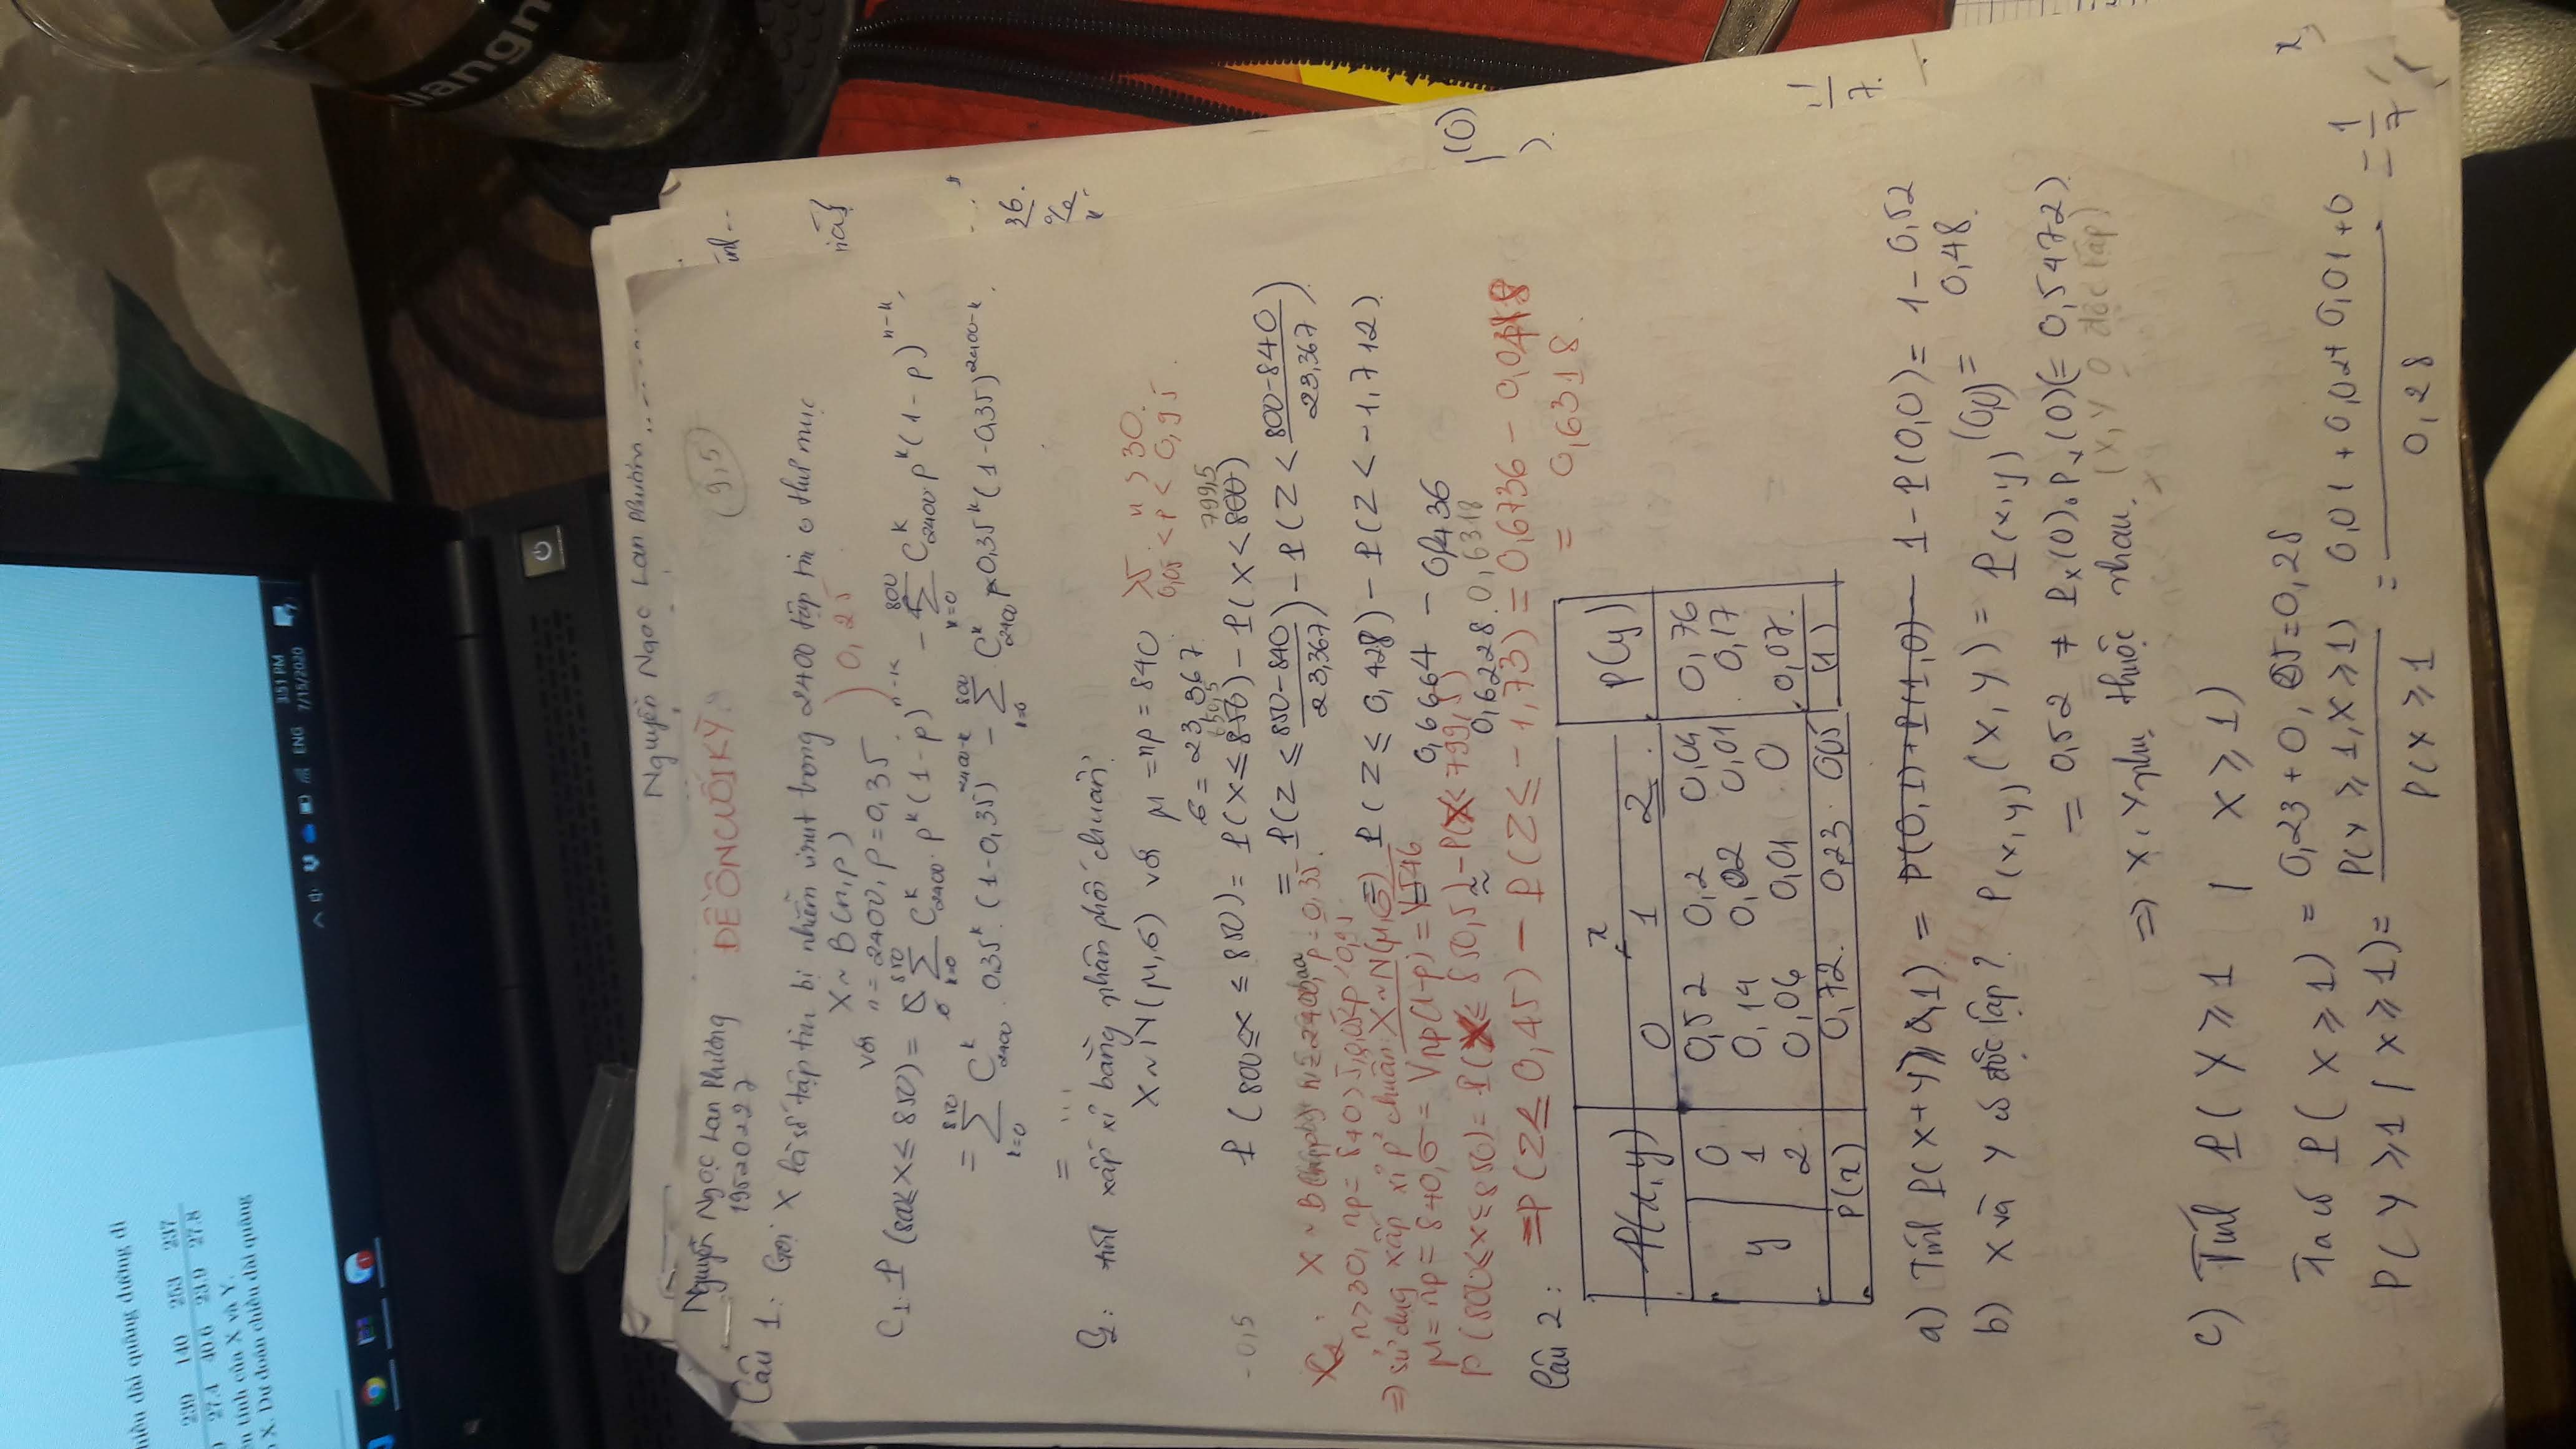 hiều dài quãng đường đi
239 140 253 237
27.4 40.6 23.9 27.8
ến tính của X và Y.
X. Dự đoán chiều dài quãng
3:51 PM
ENG
7/15/2020
Nguyễn Ngọc Lan Phương
Nguyễn Ngọc Lan Phương ĐỀ ÔN CUỐI KỲ. 9,5
19520227
Câu 1: Gọi X là số tập tin bị nhiễm virut trong 2400 tập tin ở thư mục
X ~ B(n,p)
với n = 2400, p = 0,35 ) 0,25
C1. P(800 ≤ X ≤ 850) = Σ_{k=0}^{850} C_{2400}^k . p^k (1-p)^{n-k} - Σ_{k=0}^{800} C_{2400}^k . p^k (1-p)^{n-k}
= Σ_{k=0}^{850} C_{2400}^k . 0,35^k . (1-0,35)^{2400-k} - Σ_{k=0}^{800} C_{2400}^k 0,35^k (1-0,35)^{2400-k}
= ...
C2: tính xấp xỉ bằng phân phối chuẩn:
X ~ N(μ,σ) với μ = np = 840 >5. n > 30.
σ = 23,367 0,05 < p < 0,95.
850,5 799,5
-0,5 P(800 ≤ x ≤ 850) = P(X ≤ 850) - P(X < 800)
= P(Z ≤ (850-840)/23,367) - P(Z < (800-840)/23,367)
X ~ B(n,p) n = 2400, p = 0,35.
n > 30, np = 840 > 5, 0,05 < p < 0,95
= P(Z ≤ 0,428) - P(Z < -1,712)
⇒ sử dụng xấp xỉ p² chuẩn: X ~ N(μ,σ)
μ = np = 840, σ = √np(1-p) = √546
0,6664 - 0,0436
P(800 ≤ x ≤ 850) = P(X ≤ 850,5) - P(X < 799,5)
≈ 0,6228. 0,6318
= P(Z ≤ 0,45) - P(Z ≤ -1,73) = 0,6736 - 0,0418
= 0,6318.
Câu 2:
P(x,y) x P(y)
0 1 2
0 0,52 0,2 0,04 0,76
y 1 0,14 0,02 0,01 0,17
2 0,06 0,01 0 0,07
P(x) 0,72 0,23 0,05 (1)
a) Tính P(X+Y ≥ 1) = P(0,1) + P(1,0) 1 - P(0,0) = 1 - 0,52
= 0,48.
b) X và Y có độc lập? P(x,y)(X,Y) = P(x,y)(0,0)
= 0,52 ≠ Px(0).Py(0) (= 0,5472)
⇒ X, Y phụ thuộc nhau. (X, Y 0 độc lập)
c) Tính P(Y ≥ 1 | X ≥ 1)
Ta có P(X ≥ 1) = 0,23 + 0,05 = 0,28
P(Y ≥ 1 | X ≥ 1) = P(Y ≥ 1, X ≥ 1)/P(X ≥ 1 = (0,01 + 0,02 + 0,01 + 0)/0,28 = 1/7